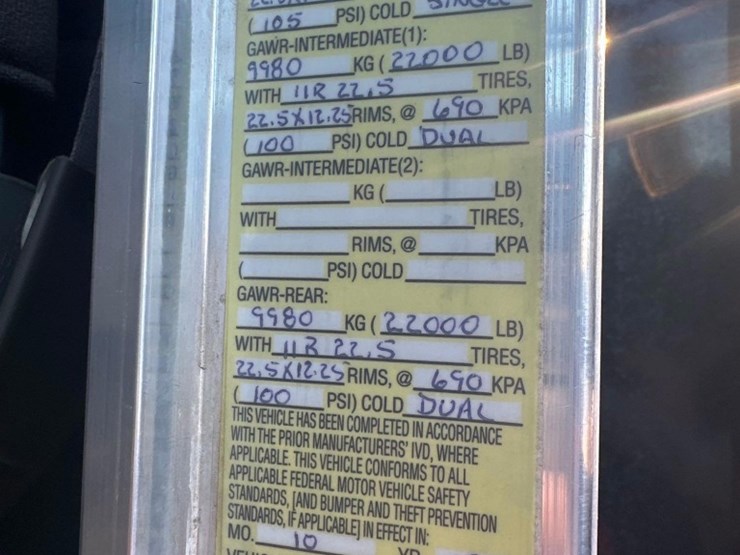 (105 PSI) COLD SINGLE
GAWR-INTERMEDIATE(1):
9980 KG (22000 LB)
WITH 11R 22.5 TIRES,
22.5X12.25 RIMS, @ 690 KPA
(100 PSI) COLD DUAL
GAWR-INTERMEDIATE(2):
KG ( LB)
WITH TIRES,
RIMS, @ KPA
( PSI) COLD
GAWR-REAR:
9980 KG (22000 LB)
WITH 11R 22.5 TIRES,
22.5X12.25 RIMS, @ 690 KPA
(100 PSI) COLD DUAL
THIS VEHICLE HAS BEEN COMPLETED IN ACCORDANCE
WITH THE PRIOR MANUFACTURERS' IVD, WHERE
APPLICABLE. THIS VEHICLE CONFORMS TO ALL
APPLICABLE FEDERAL MOTOR VEHICLE SAFETY
STANDARDS, [AND BUMPER AND THEFT PREVENTION
STANDARDS, IF APPLICABLE] IN EFFECT IN:
MO. 10